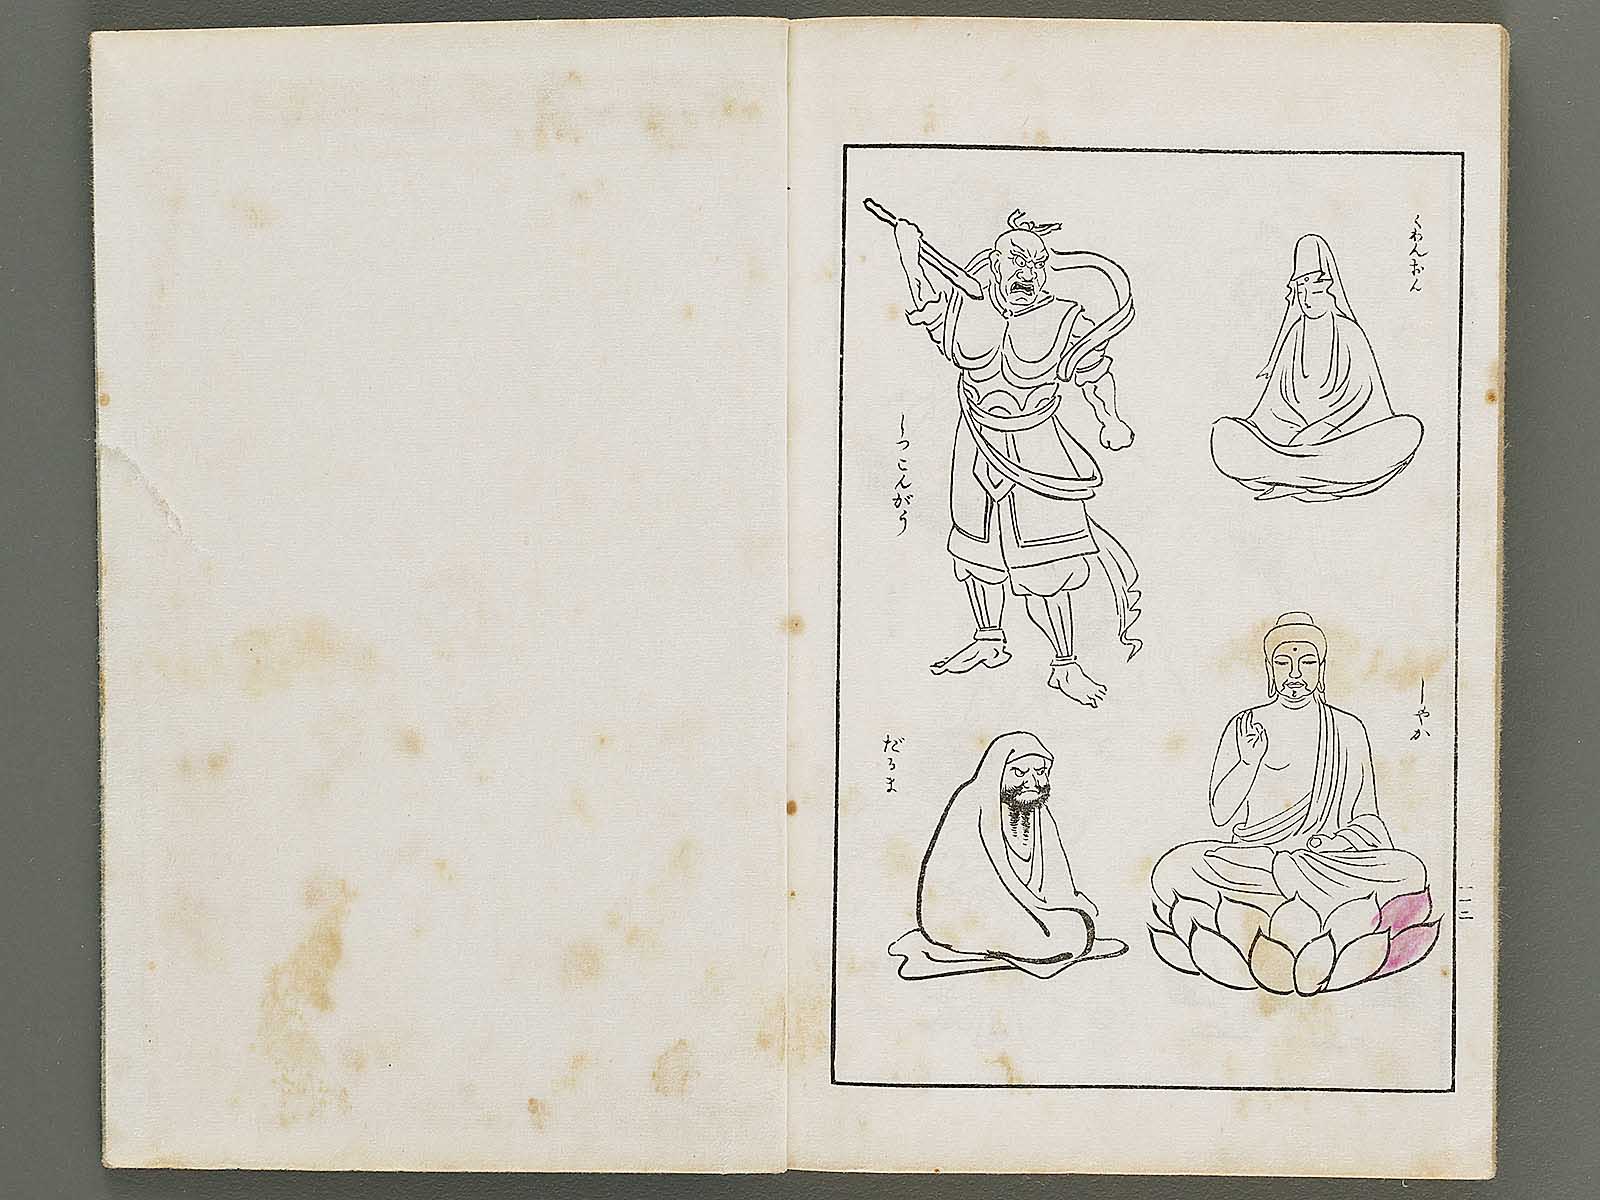 くわんおん
しやか
しつこんがう
だるま
一二